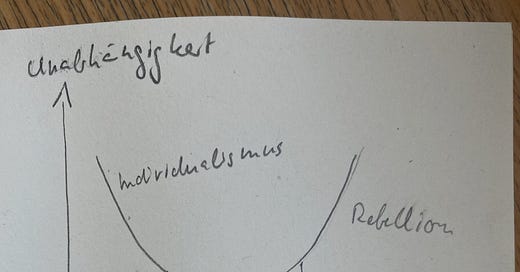 Unabhängigkeit
Individualismus
Rebellion